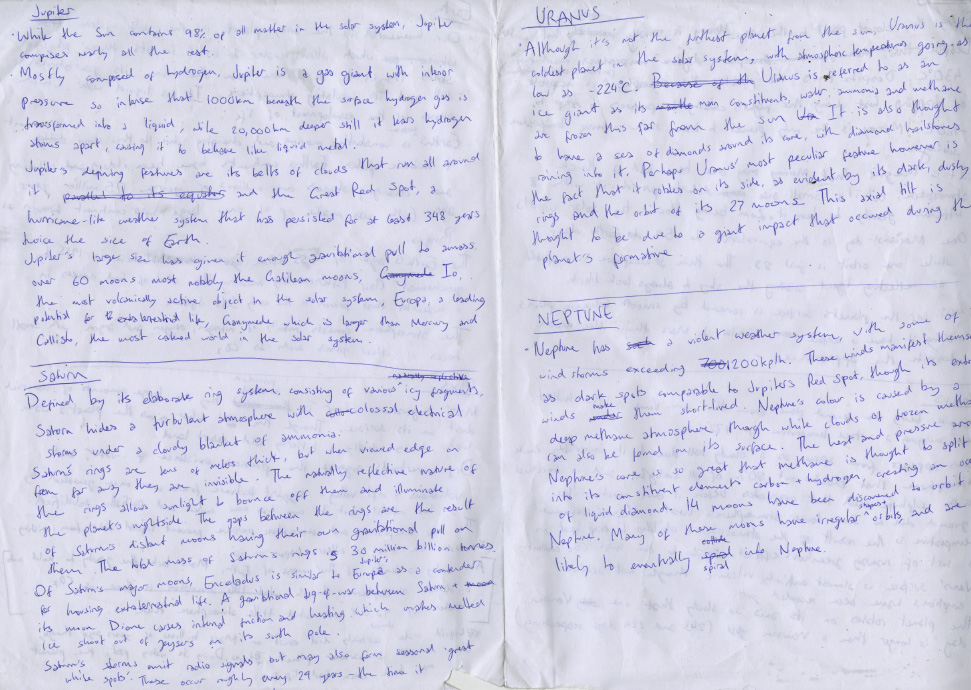 Jupiter
· While the Sun contains 98% of all matter in the solar system, Jupiter
comprises nearly all the rest.
· Mostly composed of hydrogen, Jupiter is a gas giant with interior
pressure so intense that 1000km beneath the surface hydrogen gas is
transformed into a liquid, while 20,000km deeper still it tears hydrogen
atoms apart, causing it to behave like liquid metal.
Jupiter's defining features are its belts of clouds that run all around
it parallel to its equator and the Great Red Spot, a
hurricane-like weather system that has persisted for at least 348 years
twice the size of Earth.
Jupiter's large size has given it enough gravitational pull to amass
over 60 moons, most notably the Galilean moons, Ganymede Io,
the most volcanically active object in the solar system, Europa, a leading
potential for extraterrestrial life, Ganymede which is larger than Mercury and
Callisto, the most cratered world in the solar system.
Saturn
naturally reflective
Defined by its elaborate ring system, consisting of various icy fragments,
Saturn hides a turbulent atmosphere with colossal electrical
storms under a cloudy blanket of ammonia.
Saturn's rings are tens of metres thick, but when viewed edge on
from far away they are invisible. The naturally reflective nature of
the rings allows sunlight to bounce off them and illuminate
the planet's nightside. The gaps between the rings are the result
of Saturn's distant moons having their own gravitational pull on
them. The total mass of Saturn's rings is 30 million billion tonnes.
Jupiter's
Of Saturn's major moons, Enceladus is similar to Europa as a contender
for housing extraterrestrial life. A gravitational tug-of-war between Saturn +
its moon Dione causes internal friction and heating which makes melted
ice shoot out of geysers on its south pole.
Saturn's storms emit radio signals but may also form seasonal 'great
white spots'. These occur roughly every 29 years - the time it
URANUS
· Although it's not the furthest planet from the sun, Uranus is the
coldest planet in the solar system, with atmosphere temperatures going as
low as -224°C. Because of th Uranus is referred to as an
ice giant as its main constituents, water, ammonia and methane
are frozen this far from the sun It is also thought
to have a sea of diamonds around its core, with diamond hailstones
raining into it. Perhaps Uranus' most peculiar feature however is
the fact that it rotates on its side, as evident by its dark, dusty
rings and the orbit of its 27 moons. This axial tilt is
thought to be due to a giant impact that occured during the
planet's formative
NEPTUNE
· Neptune has such a violent weather system, with some of
wind storms exceeding 700 1200kph. These winds manifest thems
as dark spots comparable to Jupiter's Red Spot, though its exte
winds make them short-lived. Neptune's colour is caused by a
deep methane atmosphere, though white clouds of frozen metha
can also be found on its surface. The heat and pressure arou
Neptune's core is so great that methane is thought to split
into its constituent elements carbon + hydrogen, creating an oce
of liquid diamond. 14 moons have been discovered to orbit
Neptune. Many of these moons have irregular orbits, and are
collide
likely to eventually spiral into Neptune.
spiral